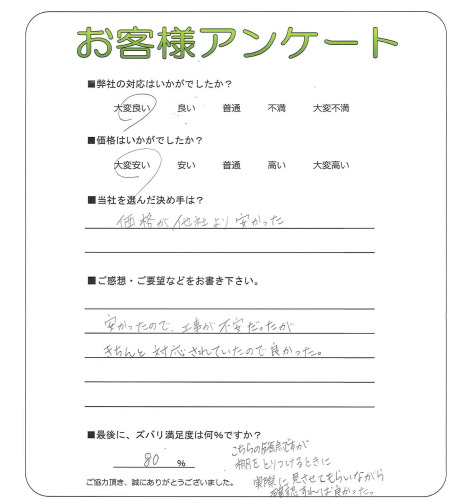 お客様アンケート
■弊社の対応はいかがでしたか？
大変良い 良い 普通 不満 大変不満
■価格はいかがでしたか？
大変安い 安い 普通 高い 大変高い
■当社を選んだ決め手は？
価格が他社より安かった
■ご感想・ご要望などをお書き下さい。
安かったので、工事が不安だったが
きちんと対応されていたので良かった。
■最後に、ズバリ満足度は何%ですか？
80 %
こちらの 点ですが
をとりつけるときに
実際に見させてもらいながら
確認すれば良かった。
ご協力頂き、誠にありがとうございました。